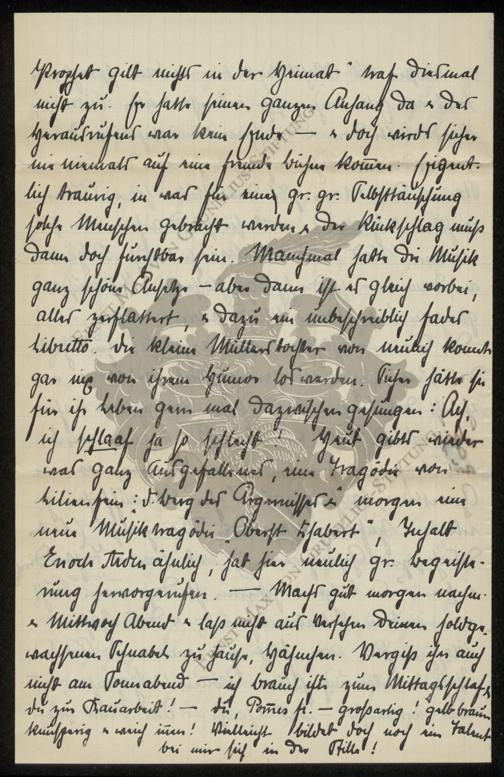 Prophet gilt nichts in der Heimat" traf diesmal
nicht zu. Er hatte seinen ganzen Anhang da & des
Herausrufens war kein Ende, — & doch wirds sicher
nie niemals auf eine fremde Bühne kommen. Eigent-
lich traurig, in was für eine gr. gr. Selbsttäuschung
solche Menschen gebracht werden, & der Rückschlag muß
dann doch furchtbar sein. Manchmal hatte die Musik
ganz schöne Ansätze — aber dann ist es gleich vorbei,
alles zerflattert, & dazu ein unbeschreiblich fades
Libretto. Die kleine Müllerstochter von neulich konnte
gar nix von ihrem Humor loswerden. Sicher hätte sie
für ihr Leben gern mal dazwischen gesungen: Ach,
ich schlaaf ja so schlecht! Heut gibts wieder
was ganz Ausgefallenes, eine Tragödie von
Lilienfein: "D. Berg des Ärgernisses" & morgen eine
neue Musiktragödie "Oberst Chabert", Inhalt
Enoch Arden ähnlich, hat hier neulich gr. Begeiste-
rung hervorgerufen. — Machs gut morgen nachm.
& Mittwoch Abend & laß nicht aus Versehen Deinen holdge-
wachsenen Schnabel zu Hause, Hähnchen. Vergiß ihn auch
nicht am Sonnabend — ich brauch ihn zum Mittagsschlaf &
Du zur Kauarbeit! — Du, — großartig! gelb braun
knusperig & weich innen! Vielleicht bildet doch noch ein Talent
bei mir sich in der Stille!
ERNST MAX VON GRUNELIUS-STIFTUNG